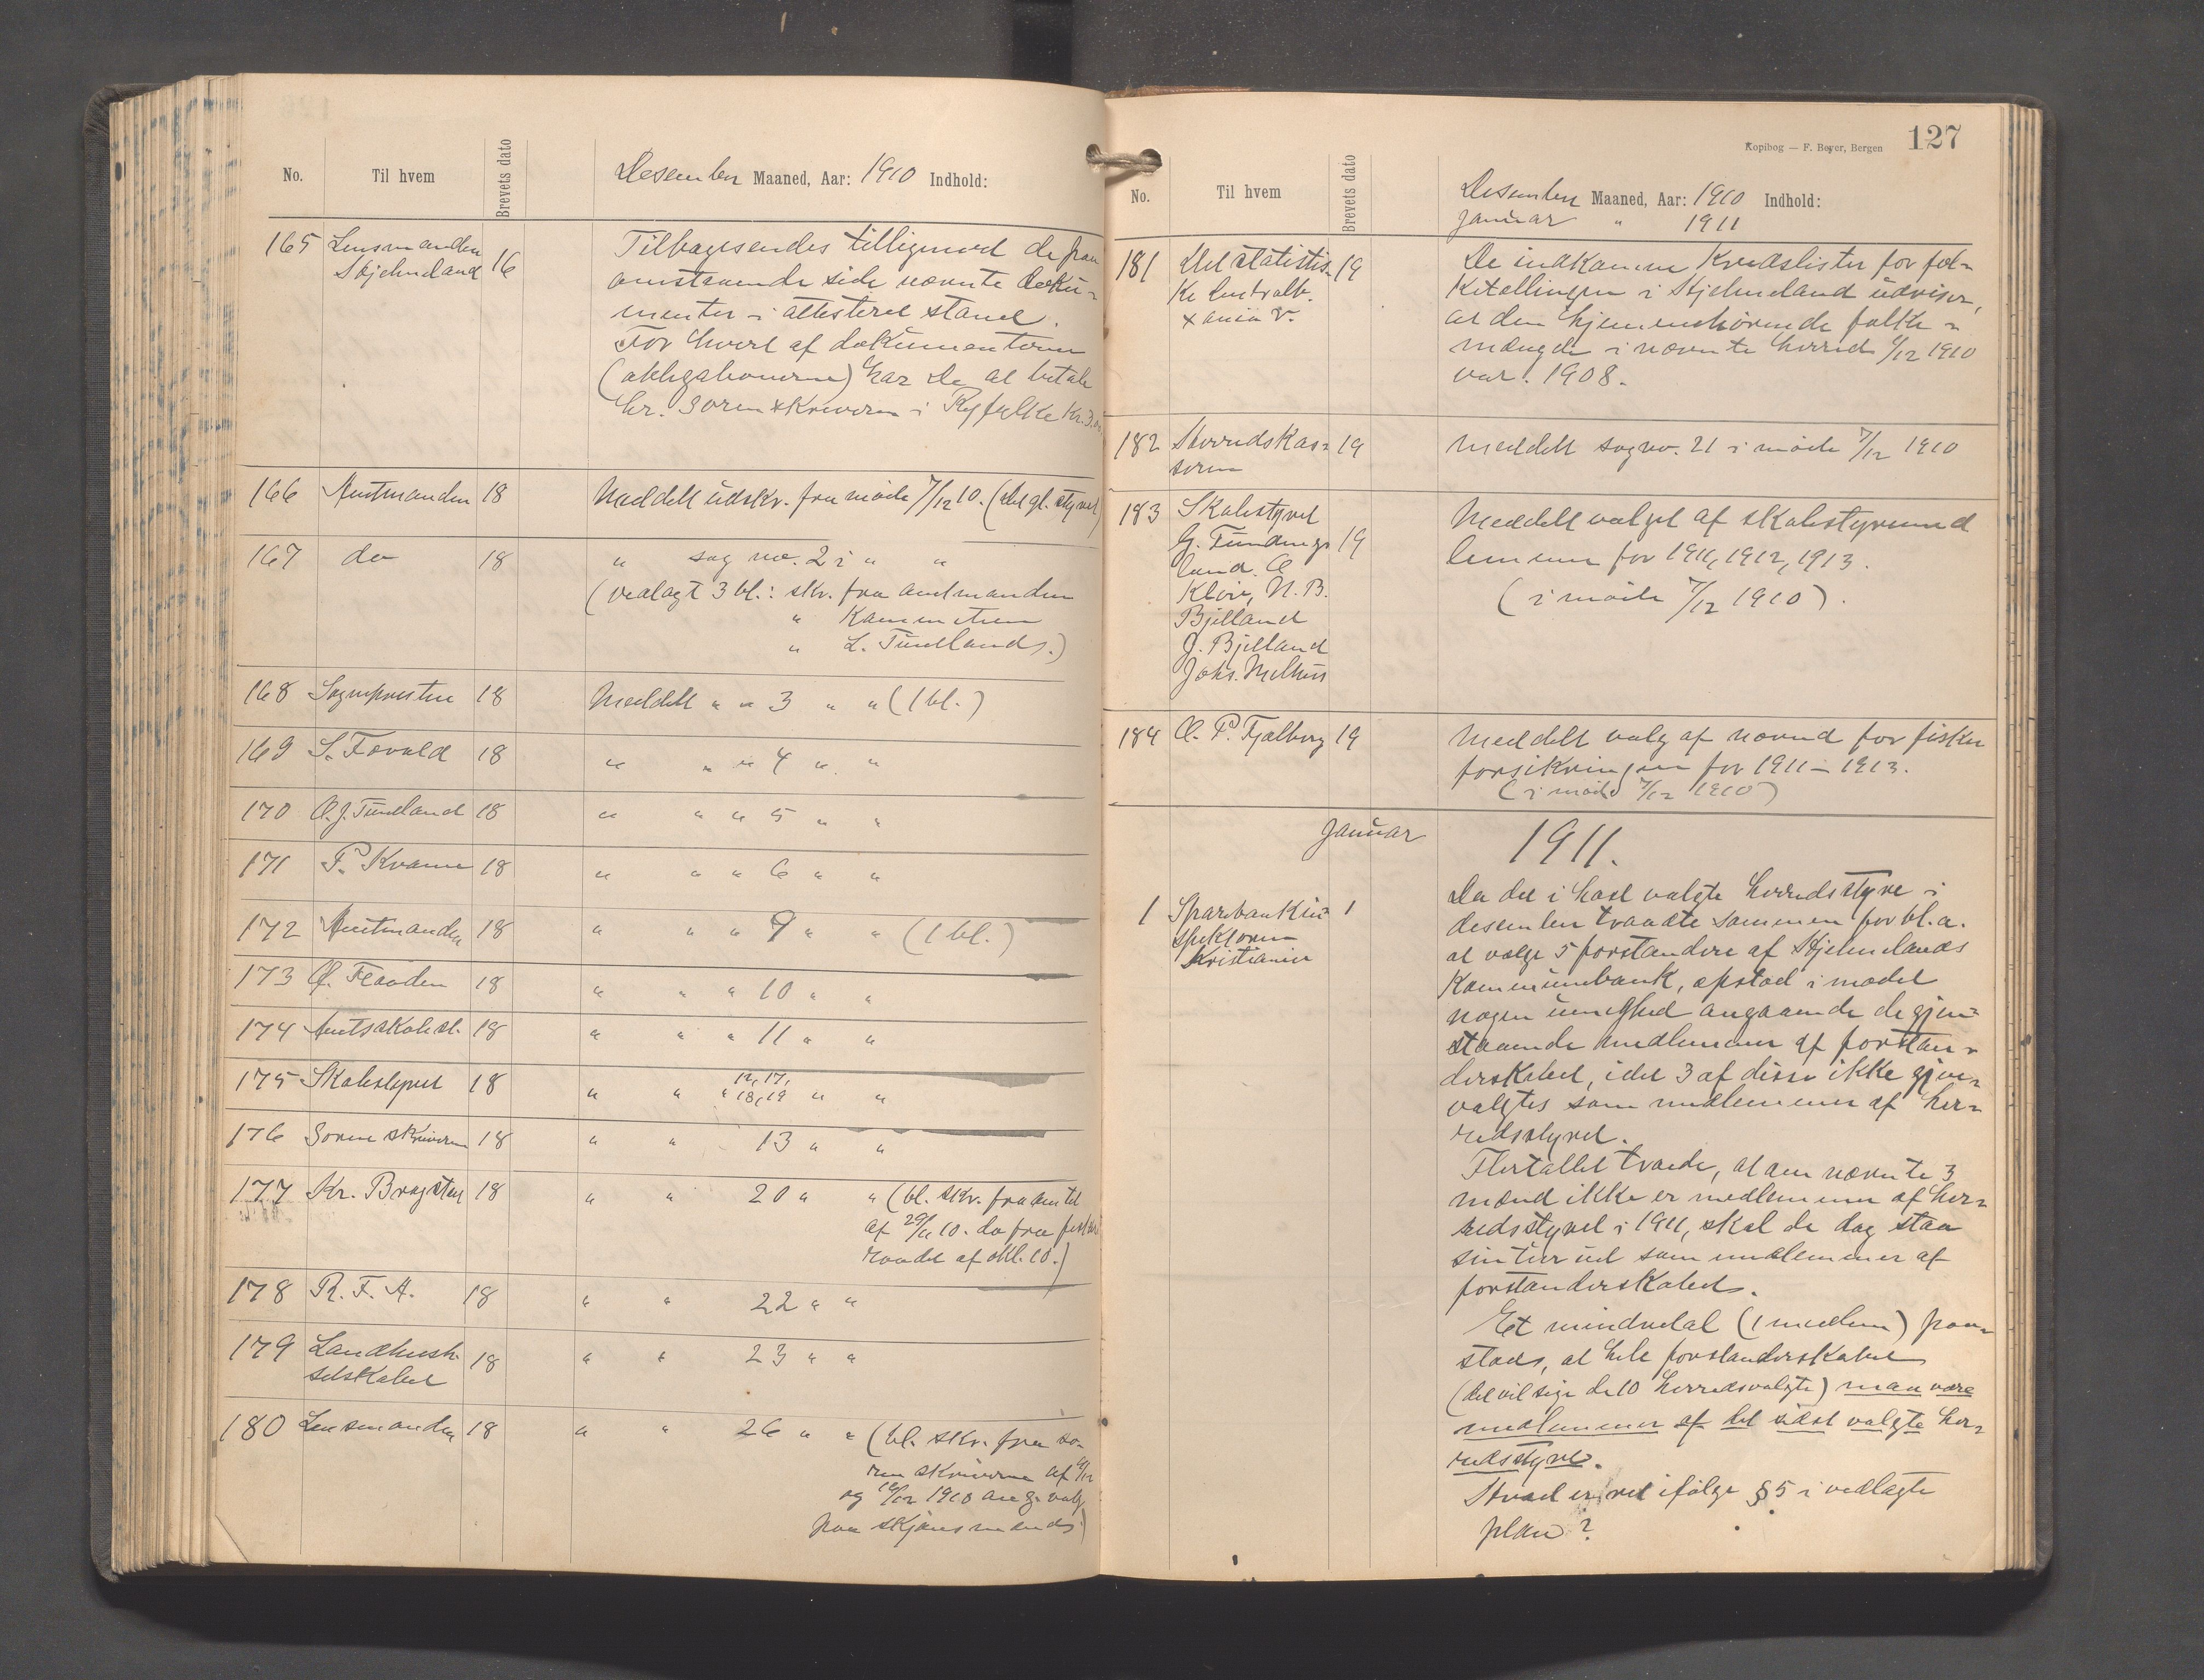 No. Til hvem Brevets dato Desember Maaned, Aar: 1910 Indhold:
165 Lensmanden 16 Tilbagesendes tilligemed de paa
Hjelmeland omstaaende side nævnte doku-
menter i attesteret stand.
For hvert af dokumenterne
(obligationerne) har De at betale
hr. Sorenskriveren i Ryfylke kr.
166 Amtmanden 18 Meddelt udskr. fra møde 7/12 10. (det gl. styret)
167 do 18 " sag no. 2 i " "
(vedlagt 3 bl.: skr. fra amtmanden
" Kammeret
" L. Tundlands.)
168 Sognepresten 18 Meddelt " " 3 " " (1 bl.)
169 S. Fevold 18 " " " 4 " "
170 O. J. Tundland 18 " " " 5 " "
171 P. Kvame 18 " " " 6 " "
172 Amtmanden 18 " " " 9 " " (1 bl.)
173 18 " " " 10 " "
174 Amtsskolest. 18 " " " 11 " "
175 Skolestyret 18 " " " 12, 17, 18, 19 " "
176 Sorenskriveren 18 " " 13 " "
177 Kr. 18 " " 20 " " (bl. skr. fra amtet
af 29/11 10. do fra
raadet af okt. 10.)
178 R. F. A. 18 " " 22 " "
179 Landhush. 18 " " 23 " "
selskabet
180 Lensmanden 18 " " 26 " " (bl. skr. fra so-
renskriveren af
og 1910 ang. valg
paa skjønsmænd)
Kopibog — F. Beyer, Bergen 127
No. Til hvem Brevets dato Desember Maaned, Aar: 1910 Indhold:
Januar " 1911
181 Det statistis- 19 De indkomne Kredslister for fol-
ke Centralb. ketællingen i Hjelmeland udviser,
Xania V. at den hjemmehørende folke-
mængde i nævnte herred 1/12 1910
var: 1908.
182 Herredskas- 19 Meddelt sag no. 21 i møde 7/12 1910
seren
183 Skolestyret Meddelt valget af skolestyremed
G. Fundings 19 lemmer for 1911, 1912, 1913.
land. O (i møde 7/12 1910).
Kleivi, N. B.
Bjelland
J. Bjelland
Johs. Melhus
184 O. P. Fjelberg 19 Meddelt valg af nævnd for fisker
forsikringen for 1911 – 1913.
(i møde 7/12 1910)
Januar 1911.
1 Sparebankin- 1 Da det i høst valgte herredsstyre i
spektøren desember traadte sammen for bl. a.
Kristiania at vælge 5 forstandere af Hjelmelands
Kommunebank, opstod i mødet
nogen uenighed angaaende de gjen-
staaende medlemmer af forstan-
derskabet, idet 3 af disse ikke gjen-
valgtes som medlemmer af her-
redsstyret.
Flertallet troede, at om nævnte 3
mænd ikke er medlemmer af her-
redsstyret i 1911, skal de dog staa
sin tur ud som medlemmer af
forstanderskabet.
Et mindretal (1 medlem) paa-
stod, at hele forstanderskabet
(det vil sige de 10 herredsvalgte) maa være
medlemmer af det sidst valgte her-
redsstyre.
Hvad er ret ifølge § 5 i vedlagte
plan?